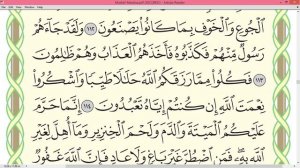 Mushaf Madinah.pdf (SECURED) - Adobe Reader
ٱلۡجُوعِ وَٱلۡخَوۡفِ بِمَا كَانُواْ يَصۡنَعُونَ ١١٢ وَلَقَدۡ جَآءَهُمۡ
رَسُولٞ مِّنۡهُمۡ فَكَذَّبُوهُ فَأَخَذَهُمُ ٱلۡعَذَابُ وَهُمۡ ظَٰلِمُونَ
١١٣ فَكُلُواْ مِمَّا رَزَقَكُمُ ٱللَّهُ حَلَٰلٗا طَيِّبٗا وَٱشۡكُرُواْ
نِعۡمَتَ ٱللَّهِ إِن كُنتُمۡ إِيَّاهُ تَعۡبُدُونَ ١١٤ إِنَّمَا حَرَّمَ
عَلَيۡكُمُ ٱلۡمَيۡتَةَ وَٱلدَّمَ وَلَحۡمَ ٱلۡخِنزِيرِ وَمَآ أُهِلَّ لِغَيۡرِ
ٱللَّهِ بِهِۦۖ فَمَنِ ٱضۡطُرَّ غَيۡرَ بَاغٖ وَلَا عَادٖ فَإِنَّ ٱللَّهَ غَفُورٞ